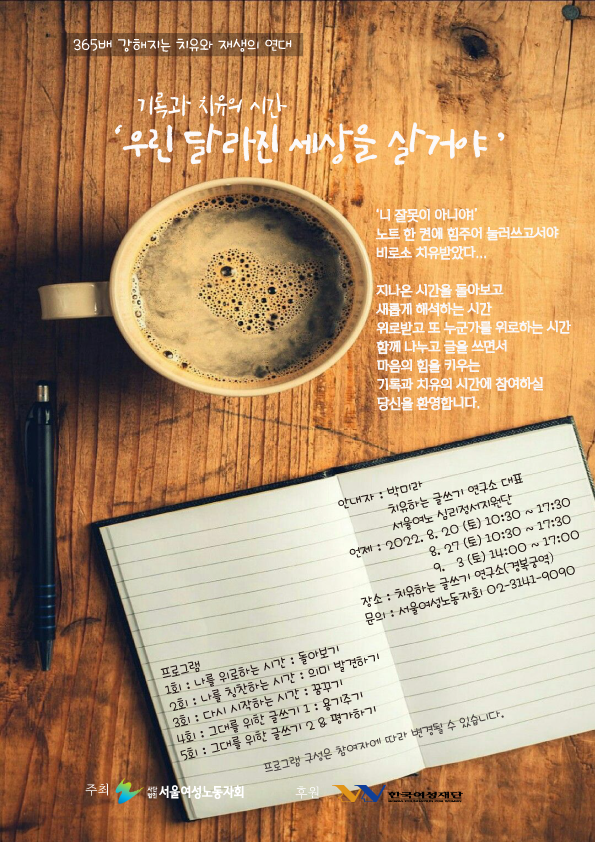 365배 강해지는 치유와 재생의 연대
기록과 치유의 시간
‘우린 달라진 세상을 살거야’
'니 잘못이 아니야!'
노트 한 켠에 힘주어 눌러쓰고서야
비로소 치유받았다...
지나온 시간을 돌아보고
새롭게 해석하는 시간
위로받고 또 누군가를 위로하는 시간
함께 나누고 글을 쓰면서
마음의 힘을 키우는
기록과 치유의 시간에 참여하실
당신을 환영합니다.
안내자 : 박미라
치유하는 글쓰기 연구소 대표
서울여노 심리정서지원단
언제 : 2022. 8. 20 (토) 10:30 ~ 17:30
8. 27 (토) 10:30 ~ 17:30
9. 3 (토) 14:00 ~ 17:00
장소 : 치유하는 글쓰기 연구소(경복궁역)
문의 : 서울여성노동자회 02-3141-9090
프로그램
1회 : 나를 위로하는 시간 : 돌아보기
2회 : 나를 칭찬하는 시간 : 의미 발견하기
3회 : 다시 시작하는 시간 : 꿈꾸기
4회 : 그대를 위한 글쓰기 1 : 용기주기
5회 : 그대를 위한 글쓰기 2 & 평가하기
프로그램 구성은 참여자에 따라 변경될 수 있습니다.
주최 사단법인 서울여성노동자회 후원 한국여성재단